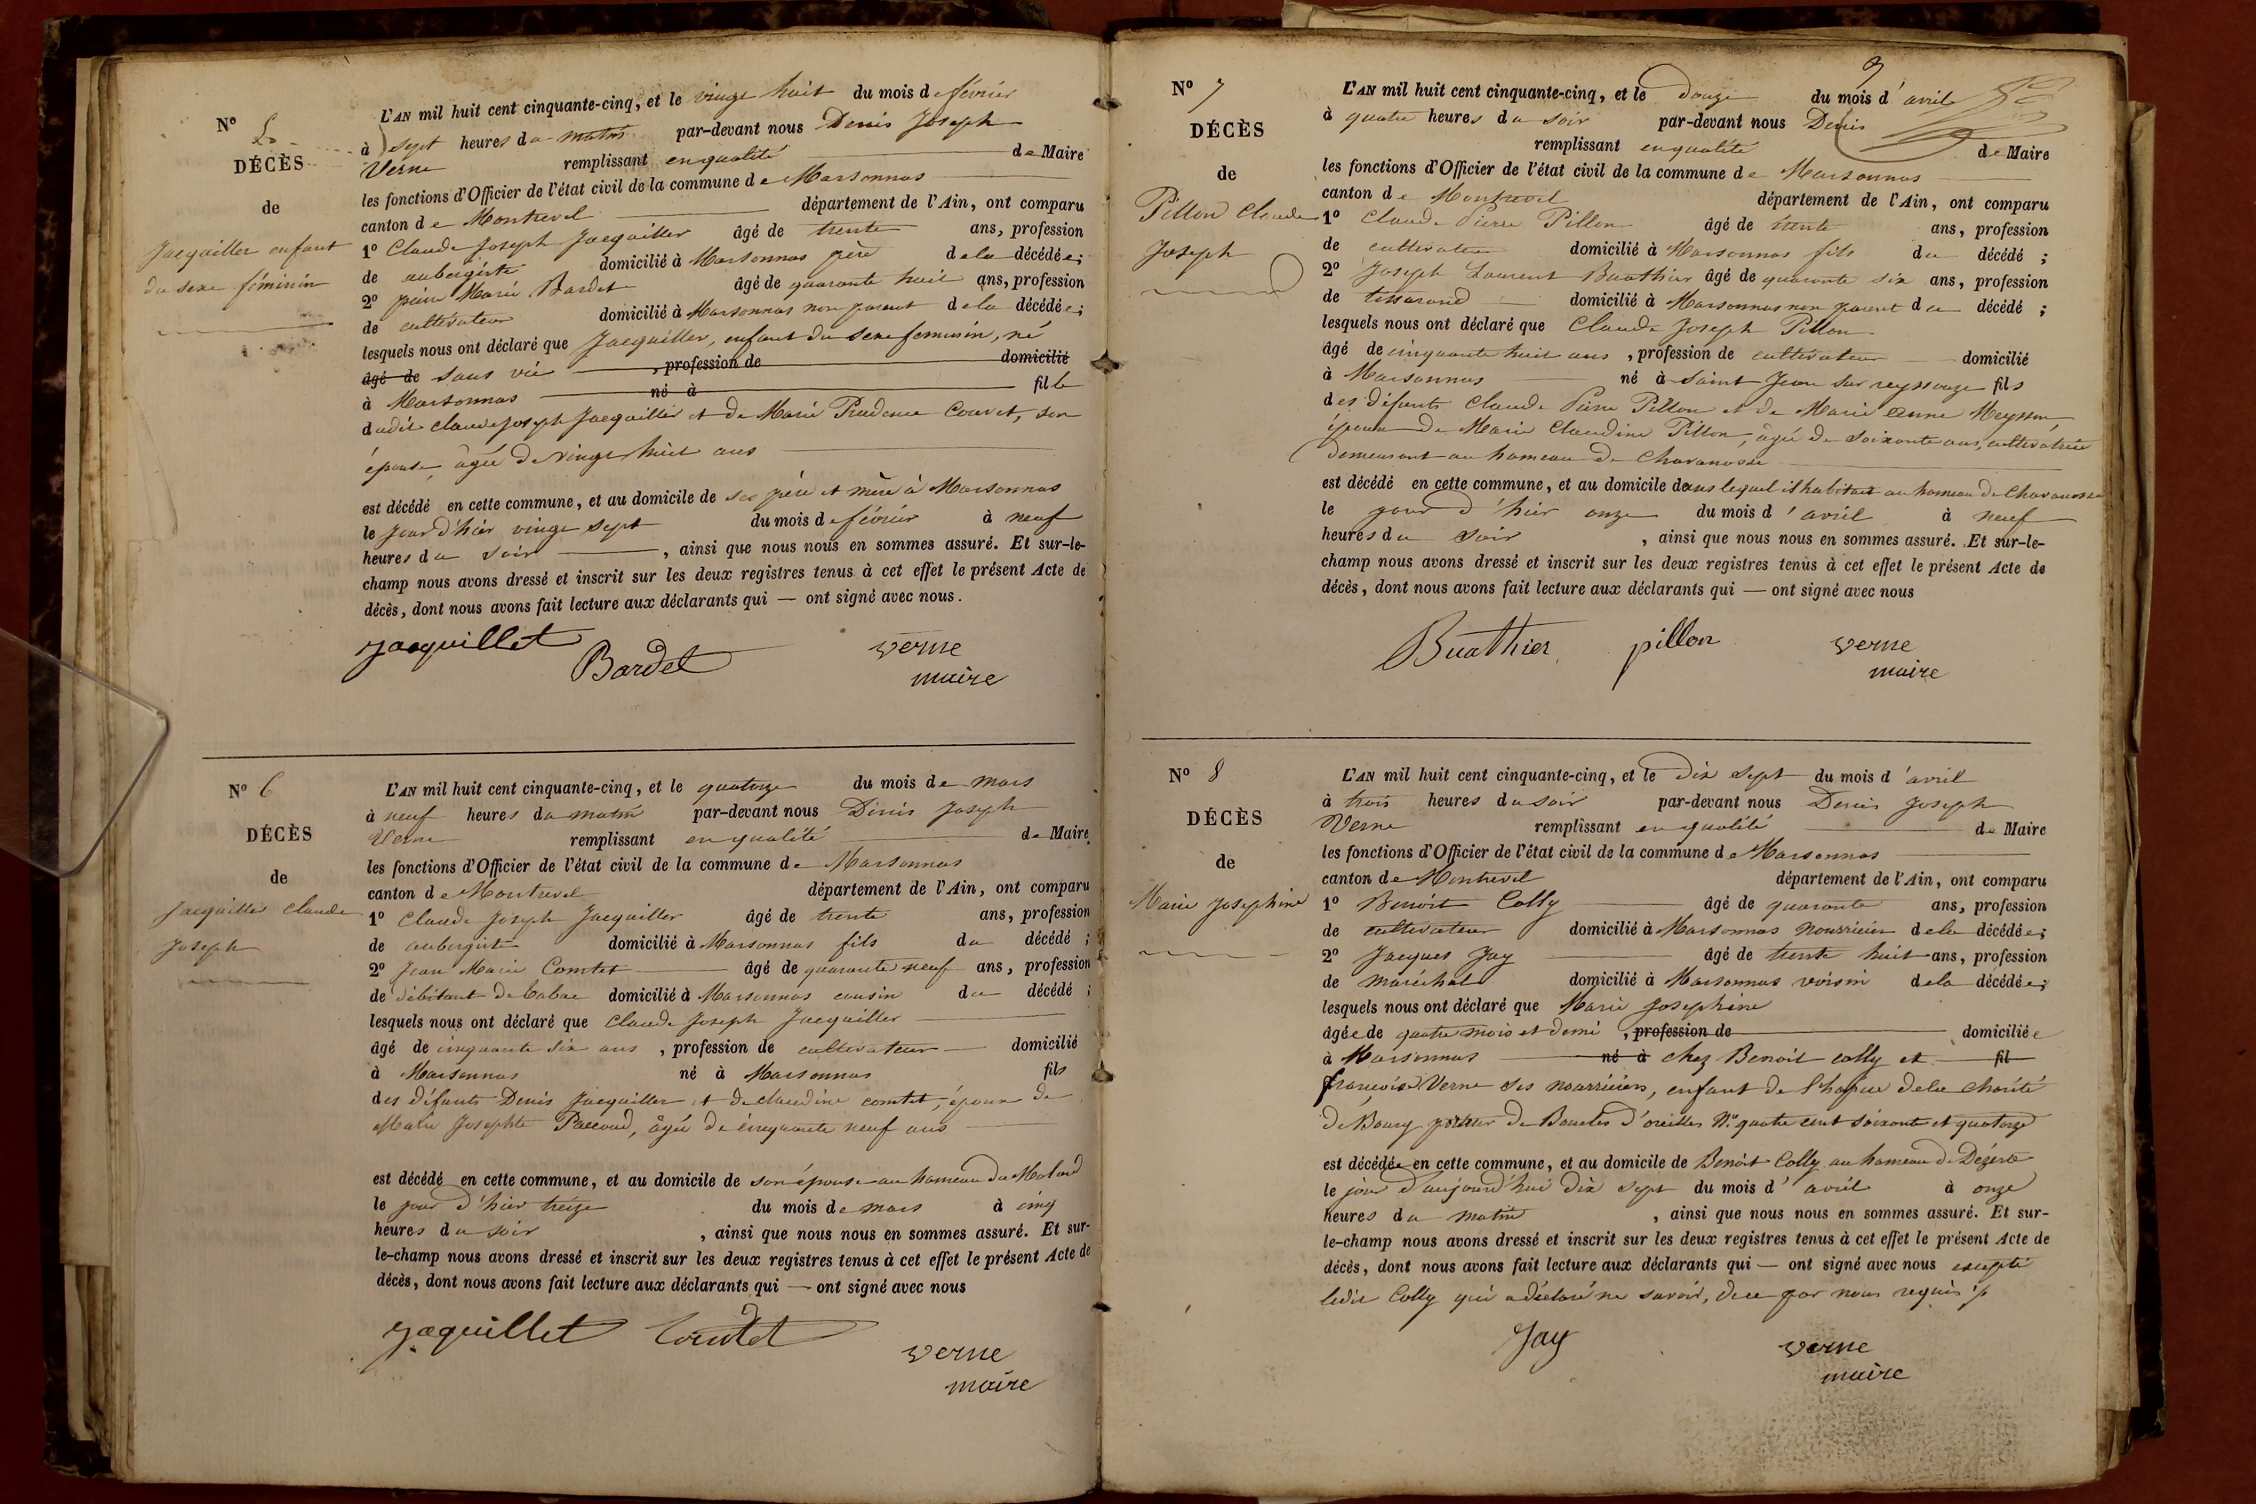 Nº 5
DÉCÈS
de
Jacquiller enfant
du sexe féminin
L'AN mil huit cent cinquante-cinq, et le vingt huit du mois de février
à sept heures du matin par-devant nous Denis Joseph
Verne remplissant en qualité de Maire
les fonctions d'Officier de l'état civil de la commune de Marsonnas
canton de Montrevel département de l'Ain, ont comparu
1º Claude Joseph Jacquiller âgé de trente ans, profession
de aubergiste domicilié à Marsonnas père de la décédée;
2º Marie Bardet âgé de quarante huit ans, profession
de cultivateur domicilié à Marsonnas non parent de la décédée;
lesquels nous ont déclaré que Jacquiller, enfant du sexe feminin, né
âgé de sans vie , profession de domicilié
à Marsonnas né à fille
dudit claude joseph Jacquiller et de Marie Prudence Couvet, son
épouse, âgée de vingt huit ans
est décédé en cette commune, et au domicile de ses père et mère à Marsonnas
le jour d'hier vingt sept du mois de février à neuf
heures du soir , ainsi que nous nous en sommes assuré. Et sur-le-
champ nous avons dressé et inscrit sur les deux registres tenus à cet effet le présent Acte de
décès, dont nous avons fait lecture aux déclarants qui — ont signé avec nous.
Jacquillet
Bardet
verne
maire
Nº 6
DÉCÈS
de
Jacquiller Claude
Joseph
L'AN mil huit cent cinquante-cinq, et le quatorze du mois de mars
à neuf heures du matin par-devant nous Dinis Joseph
Verne remplissant en qualité de Maire
les fonctions d'Officier de l'état civil de la commune de Marsonnas
canton de Montrevel département de l'Ain, ont comparu
1º Claude Joseph Jacquiller âgé de trente ans, profession
de aubergiste domicilié à Marsonnas fils du décédé;
2º Jean Marie Comtet âgé de quarante neuf ans, profession
de débitant de tabac domicilié à Marsonnas cousin du décédé;
lesquels nous ont déclaré que Claude Joseph Jacquiller
âgé de cinquante six ans , profession de cultivateur domicilié
à Marsonnas né à Marsonnas fils
des défunts Denis Jacquiller et de claudine comtet, époux de
Marie Josephte Paccoud, âgée de cinquante neuf ans
est décédé en cette commune, et au domicile de son épouse au hameau du Molard
le jour d'hier treize du mois de mars à cinq
heures du soir , ainsi que nous nous en sommes assuré. Et sur-
le-champ nous avons dressé et inscrit sur les deux registres tenus à cet effet le présent Acte de
décès, dont nous avons fait lecture aux déclarants qui — ont signé avec nous
Jacquillet Comtet
verne
maire
Nº 7
DÉCÈS
de
Pillon Claude
Joseph
L'AN mil huit cent cinquante-cinq, et le douze du mois d'avril
à quatre heures du soir par-devant nous Denis
remplissant en qualité de Maire
les fonctions d'Officier de l'état civil de la commune de Marsonnas
canton de Montrevel département de l'Ain, ont comparu
1º Claude Pierre Pillon âgé de trente ans, profession
de cultivateur domicilié à Marsonnas fils du décédé;
2º Joseph Laurent Buathier âgé de quarante six ans, profession
de tisserand domicilié à Marsonnas non parent du décédé;
lesquels nous ont déclaré que Claude Joseph Pillon
âgé de cinquante huit ans , profession de cultivateur domicilié
à Marsonnas né à Saint Jean sur reyssouze fils
des défunts Claude Pierre Pillon et de Marie Anne Meysson,
époux de Marie Claudine Pillon, âgée de soixante ans, cultivatrice
demeurant au hameau de Chavanosse
est décédé en cette commune, et au domicile dans lequel il habitait au hameau de Chavanosse
le jour d'hier onze du mois d'avril à neuf
heures du soir , ainsi que nous nous en sommes assuré. Et sur-le-
champ nous avons dressé et inscrit sur les deux registres tenus à cet effet le présent Acte de
décès, dont nous avons fait lecture aux déclarants qui — ont signé avec nous
Buathier pillon verne
maire
Nº 8
DÉCÈS
de
Marie Josephine
L'AN mil huit cent cinquante-cinq, et le dix sept du mois d'avril
à trois heures du soir par-devant nous Denis Joseph
Verne remplissant en qualité de Maire
les fonctions d'Officier de l'état civil de la commune de Marsonnas
canton de Montrevel département de l'Ain, ont comparu
1º Benoit Colly âgé de quarante ans, profession
de cultivateur domicilié à Marsonnas nourricier de la décédée;
2º Jacques Jay âgé de trente huit ans, profession
de maréchal domicilié à Marsonnas voisin de la décédée;
lesquels nous ont déclaré que Marie Josephine
âgée de quatre mois et demi , profession de domiciliée
à Marsonnas né à chez Benoit colly et fil
françoise Verne ses nourriciers, enfant de l'hospice de la charité
de Bourg de Boucles d'oreilles Nº quatre cent soixante et quatorze
est décédée en cette commune, et au domicile de Benoit Colly au hameau de Dézerte
le jour d'aujourd'hui dix sept du mois d'avril à onze
heures du matin , ainsi que nous nous en sommes assuré. Et sur-
le-champ nous avons dressé et inscrit sur les deux registres tenus à cet effet le présent Acte de
décès, dont nous avons fait lecture aux déclarants qui — ont signé avec nous excepté
ledit Colly qui a déclaré ne savoir, de ce par nous requis
Jay verne
maire